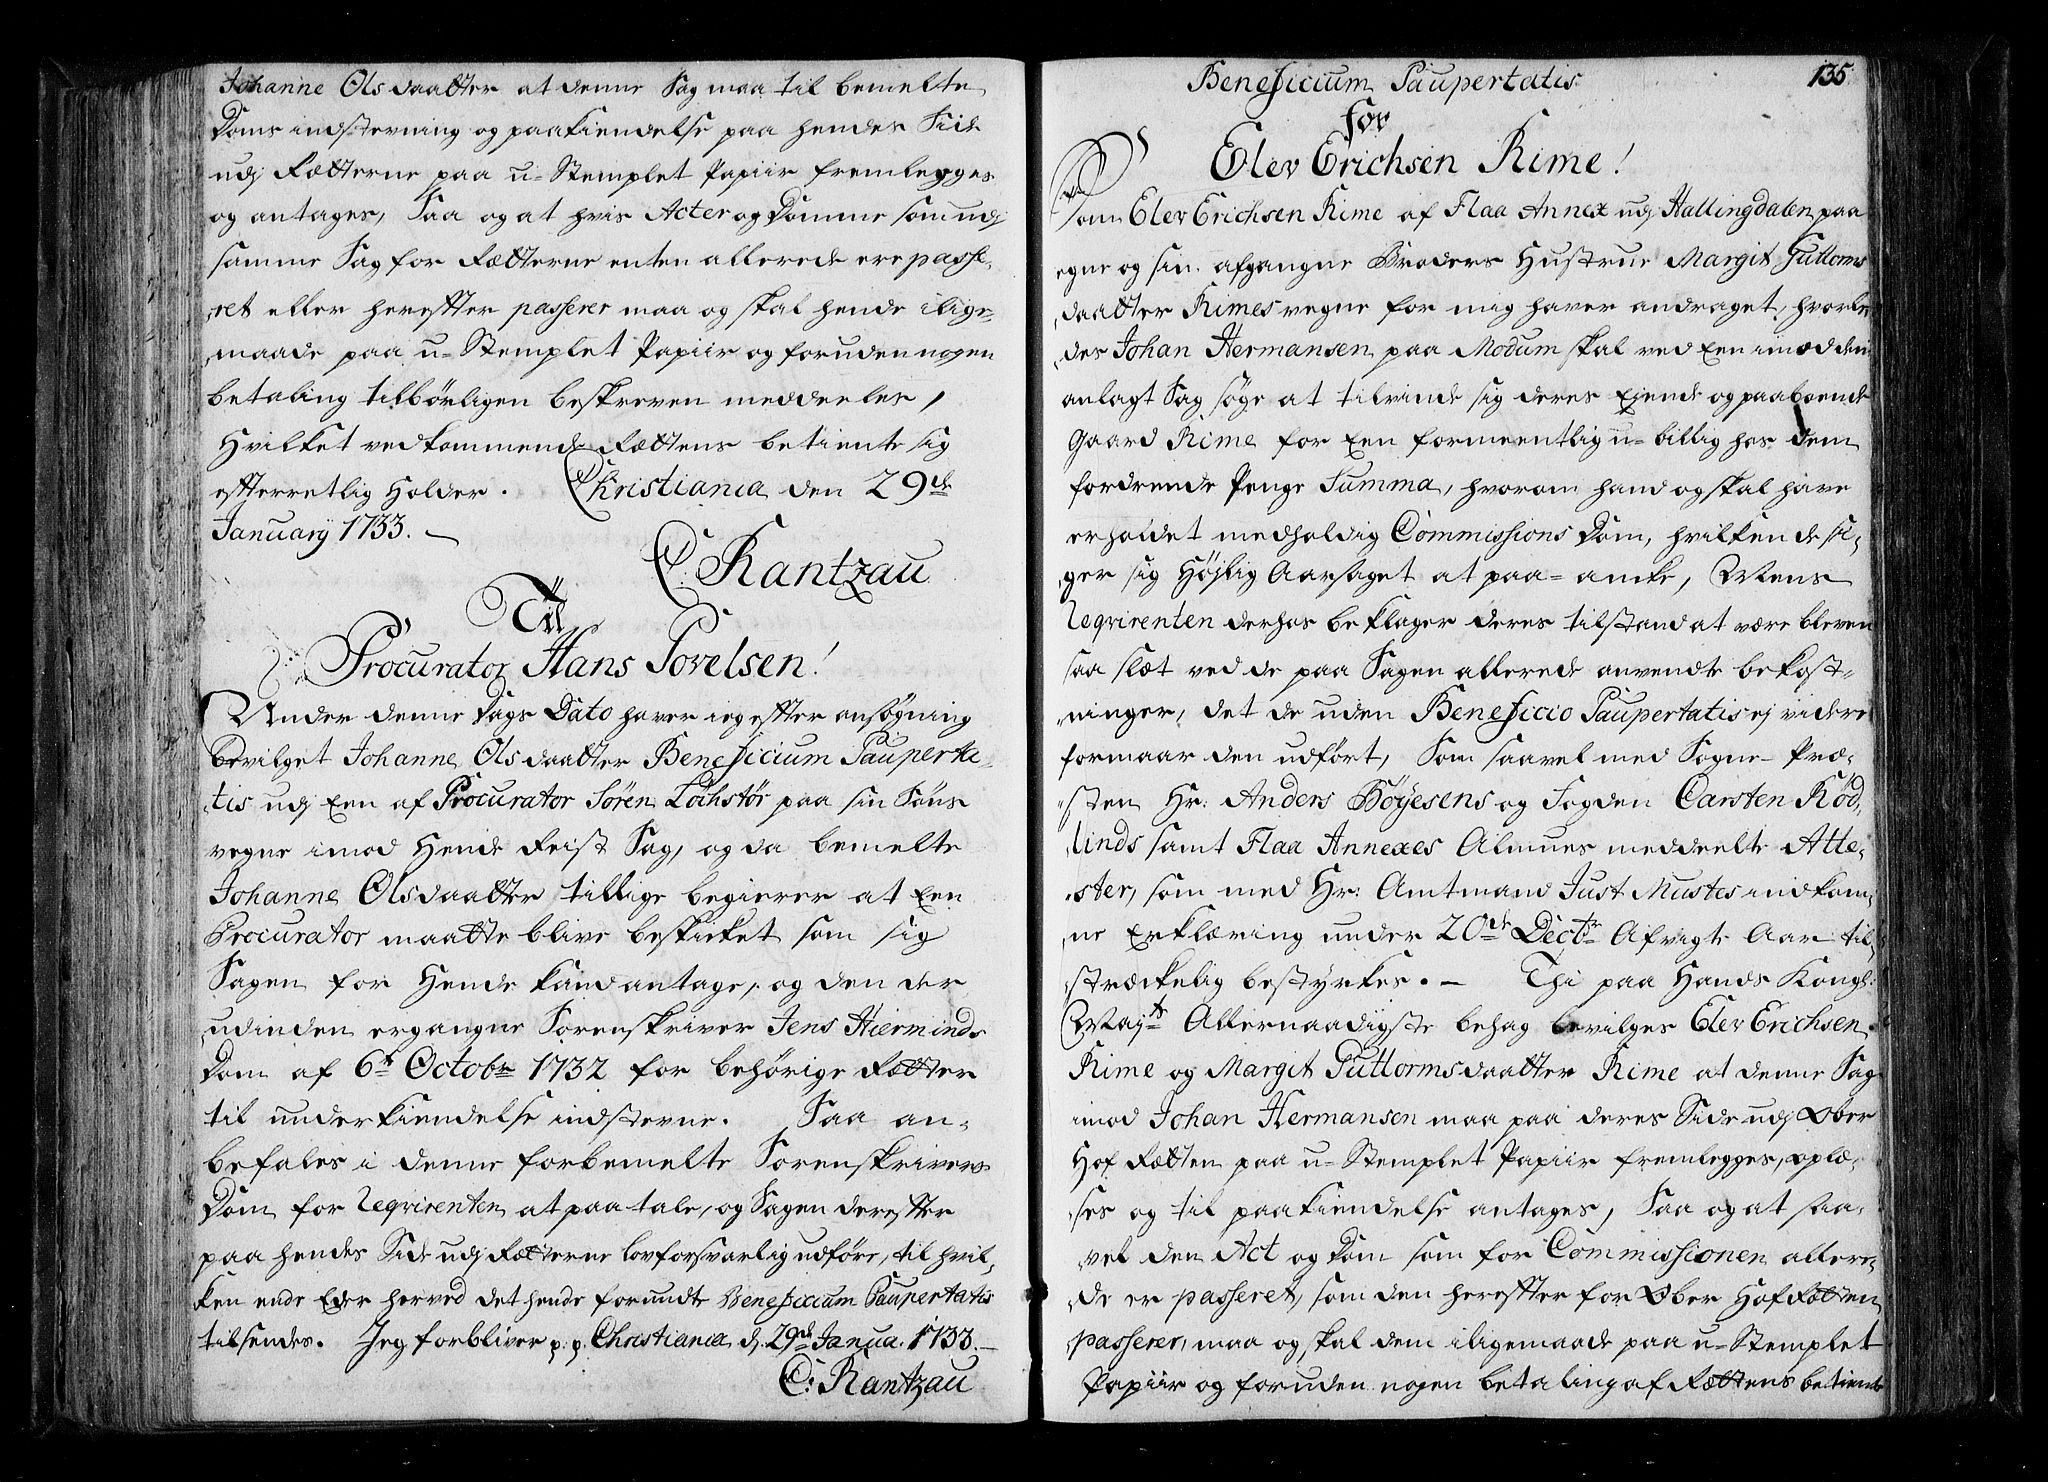 Johanne Olsdaatter at denne Sag maa til bemelte
Doms indstevning og paakiendelse paa hendes Side
udj Rætterne paa u-Stemplet Papiir fremlegges
og antages, Saa og at hvis Acter og Domme som udj
samme Sag for Rætterne enten allerede ere passe-
ret eller herefter passerer maa og skal hende i lige-
maade paa u-Stemplet Papiir og foruden nogen
betaling tilbørligen beskreven meddeeles,
Hvilket vedkommende Rættens betiente sig
efterretlig Holder. Christiania den 29de
Januarij 1733.
C: Rantzau
Til
Procurator Hans Povelsen!
Under denne Dags Dato haver ieg efter ansøgning
bevilget Johanne Olsdaatter Beneficium Pauperta-
tis udj Een af Procurator Sören Lochstör paa sin Søns
vegne imod Hende Reist Sag, og da bemelte
Johanne Olsdaatter tillige begierer at Een
Procurator maatte blive beskicket som sig
Sagen for Hende kand antage, og den der
udinden ergangne Sorenskriver Jens Hierminds
Dom af 6te Octobr 1732 for behörige Rætter
til underkiendelse indstevne. Saa an-
befales i denne forbemelte Sorenskrivers
Dom for Reqvirenten at paatale, og Sagen derefter
paa hendes Side udj Rætterne lovforsvarlig udföre, til hvil-
ken ende Eder herved det hende forundte Beneficium Paupertatis
tilsendes. Jeg forbliver p. p. Christiania d. 29de Janua. 1733.
C: Rantzau
135
Beneficium Paupertatis
for
Elev Erichsen Rime!
Som Elev Erichsen Rime af Flaa Annex udj Hallingdalen paa
egne og sin afgangne Broders Hustrue Margit Guttorms
daatter Rimes vegne for mig haver andraget, hvorle-
des Johan Hermansen paa Modum skal ved Een imod dem
anlagt Sag søge at tilvinde sig deres Ejende og paaboende
Gaard Rime for Een formeentlig u-billig hos dem
fordrende Penge Summa, hvorom hand og skal have
erholdet medholdig Commissions Dom, hvilken de si-
ger sig Højlig Aarsaget at paa-ancke, Mens
Reqvirenten derhos beklager deres tilstand at være bleven
saa slæt ved de paa Sagen allerede anvendte bekost-
ninger, det de uden Beneficio Paupertatis ej videre
formaar den udført, Som saavel med Sogne-Præ-
sten Hr: Anders Böyesens og Fogden Carsten Röd-
linds samt Flaa Annexes Almues meddeelte Atte-
ster, som med Hr: Amtmand Just Mustes indkom-
ne Erklæring under 20de Dectr Afvigte Aar til-
stræckelig bestyrkes. — Thi paa Hands Kongl:
Mayts Allernaadigste behag bevilges Elev Erichsen
Rime og Margit Guttormsdaatter Rime at denne Sag
imod Johan Hermansen maa paa deres Side udj Ober
Hof Rætten paa u-Stemplet Papiir fremlegges, oplæ-
ses og til paakiendelse antages, Saa og at saa-
vel den Act og Dom som for Commissionen allere-
de er passeret, som den herefter for Ober Hof Rætten
passerer, maa og skal dem i ligemaade paa u-Stemplet
Papiir og foruden nogen betaling af Rættens betiente